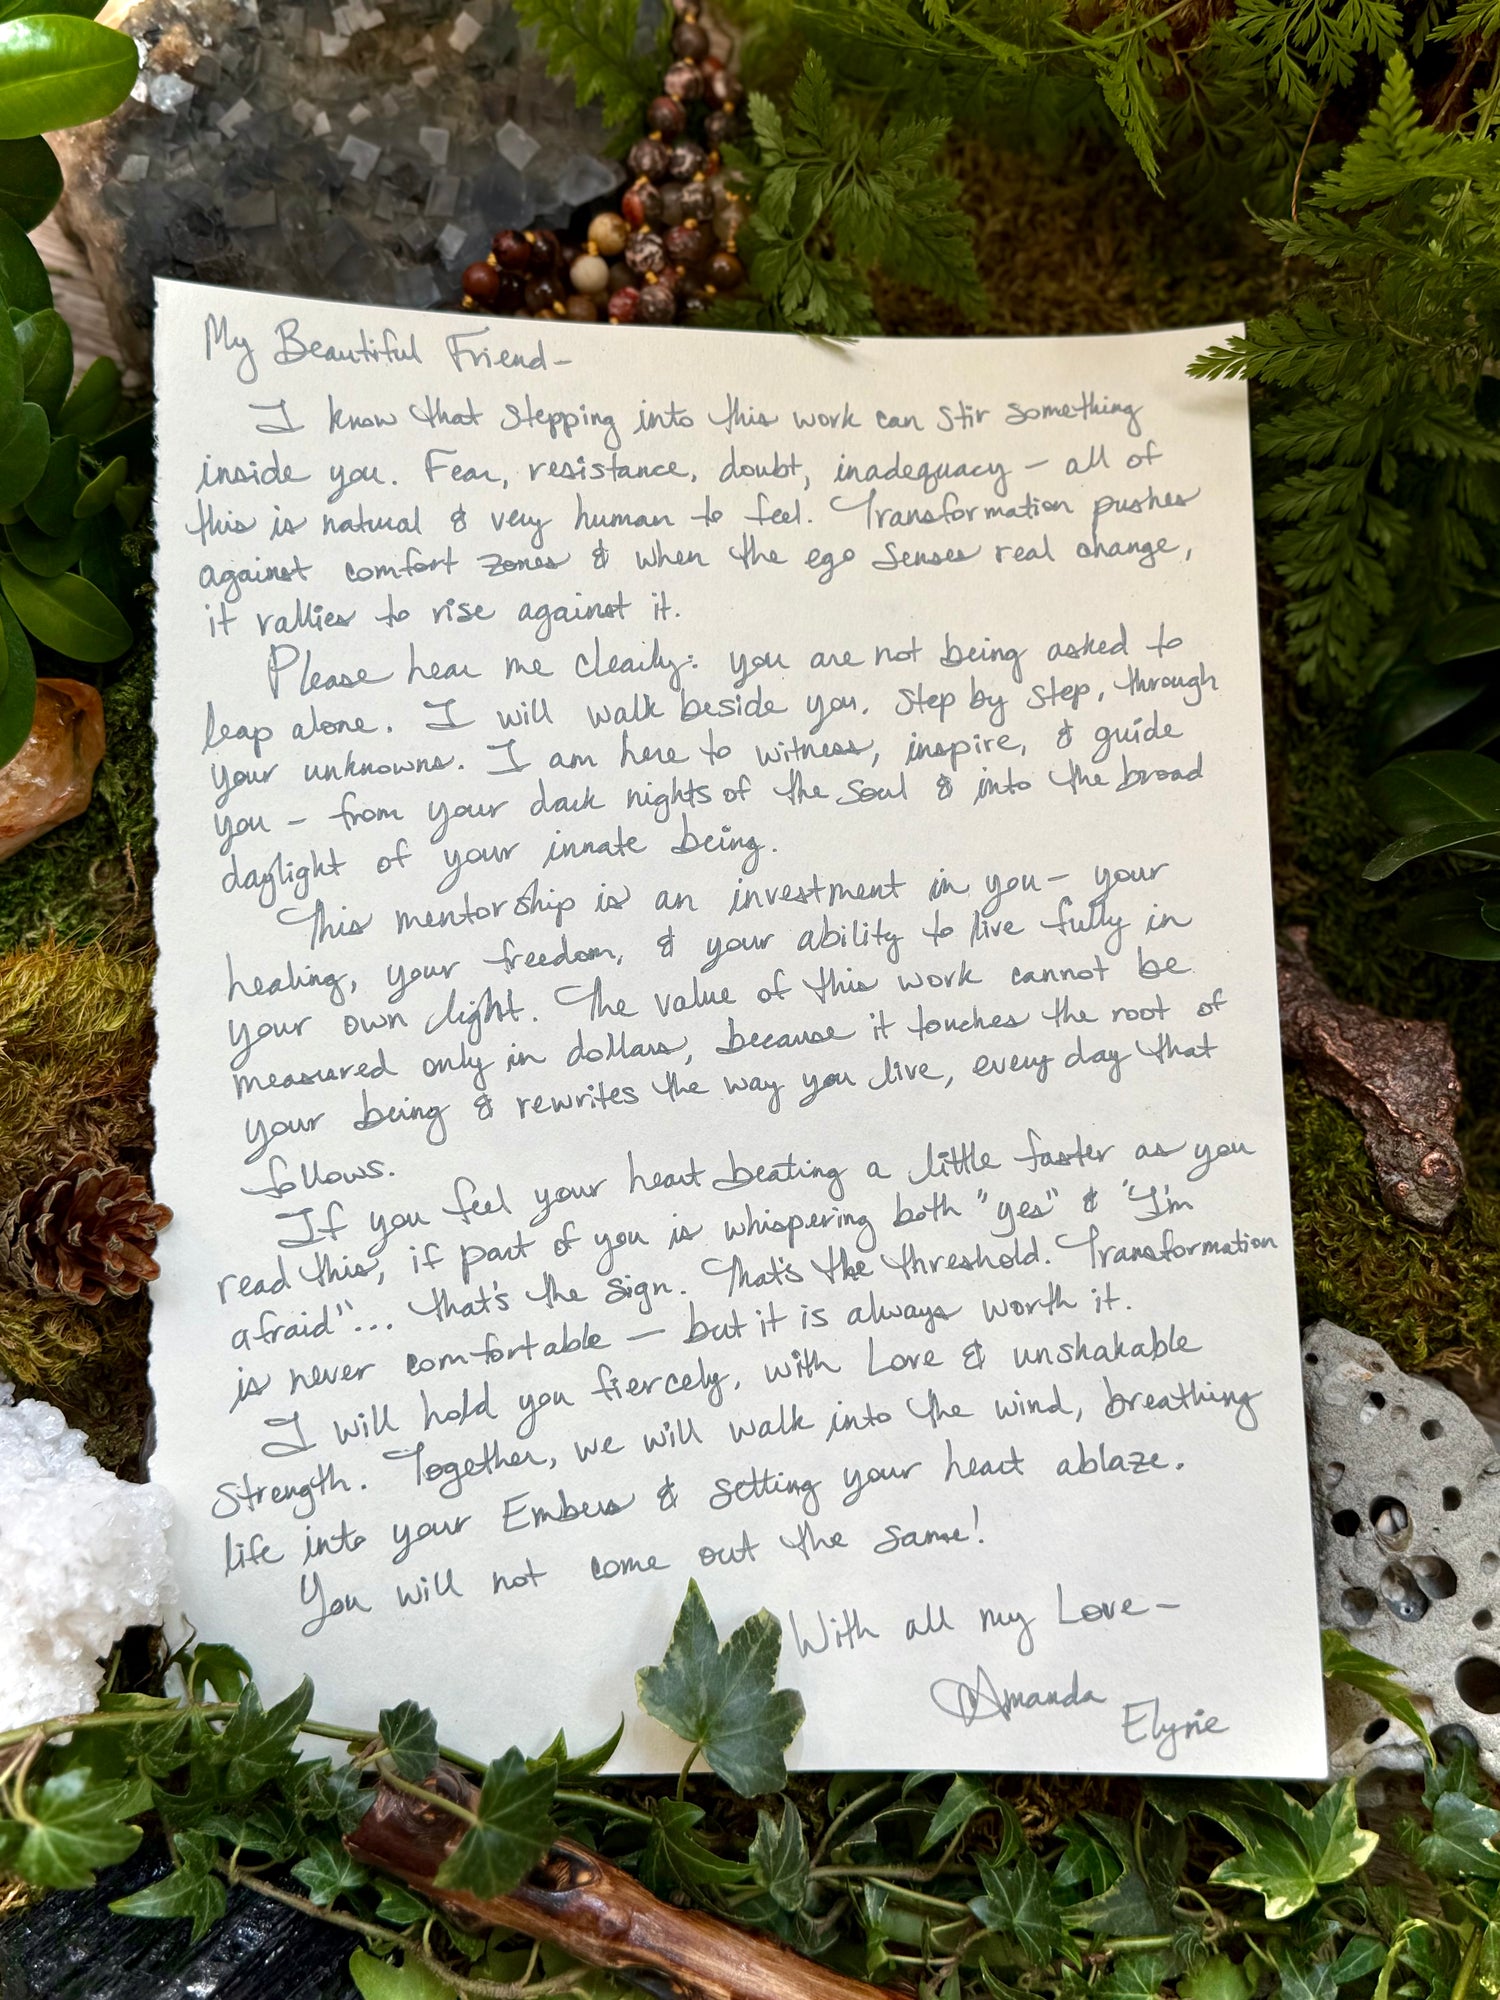 My Beautiful Friend-
I know that stepping into this work can stir something
inside you. Fear, resistance, doubt, inadequacy - all of
this is natural & very human to feel. Transformation pushes
against comfort zones & when the ego senses real change,
it rallies to rise against it.
Please hear me clearly: you are not being asked to
leap alone. I will walk beside you, step by step, through
your unknowns. I am here to witness, inspire, & guide
you - from your dark nights of the Soul & into the broad
daylight of your innate being.
This mentorship is an investment in you - your
healing, your freedom, & your ability to live fully in
your own light. The value of this work cannot be
measured only in dollars, because it touches the root of
your being & rewrites the way you live, every day that
follows.
If you feel your heart beating a little faster as you
read this, if part of you is whispering both "yes" & "I'm
afraid"... that's the sign. That's the threshold. Transformation
is never comfortable — but it is always worth it.
I will hold you fiercely, with Love & unshakable
strength. Together, we will walk into the wind, breathing
life into your Embers & setting your heart ablaze.
You will not come out the same!
With all my Love -
Amanda
Elyrie